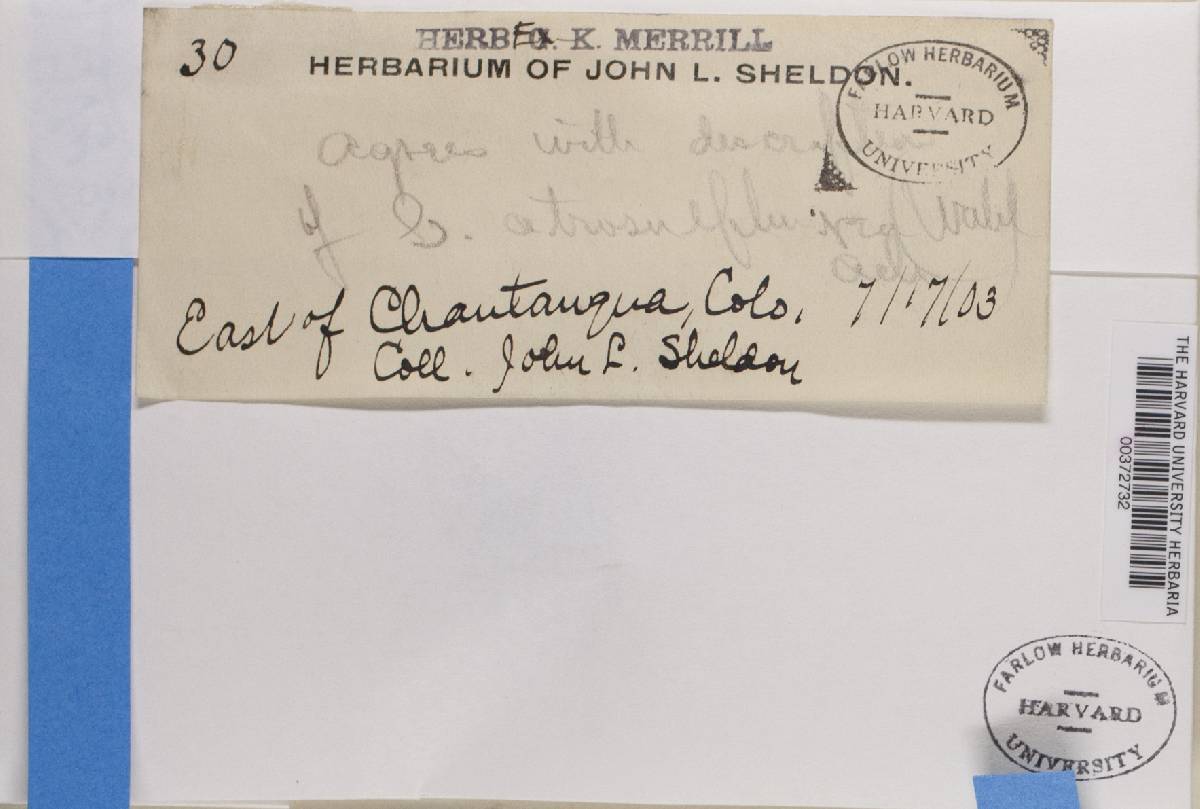 30
HERB. G. K. MERRILL
Ex
HERBARIUM OF JOHN L. SHELDON.
FARLOW HERBARIUM
HARVARD
UNIVERSITY
agrees with description
of L. atrosulphurea Wahl
East of Chautauqua, Colo. 7/17/03
Coll. John L. Sheldon
THE HARVARD UNIVERSITY HERBARIA
00372732
FARLOW HERBARIUM
HARVARD
UNIVERSITY